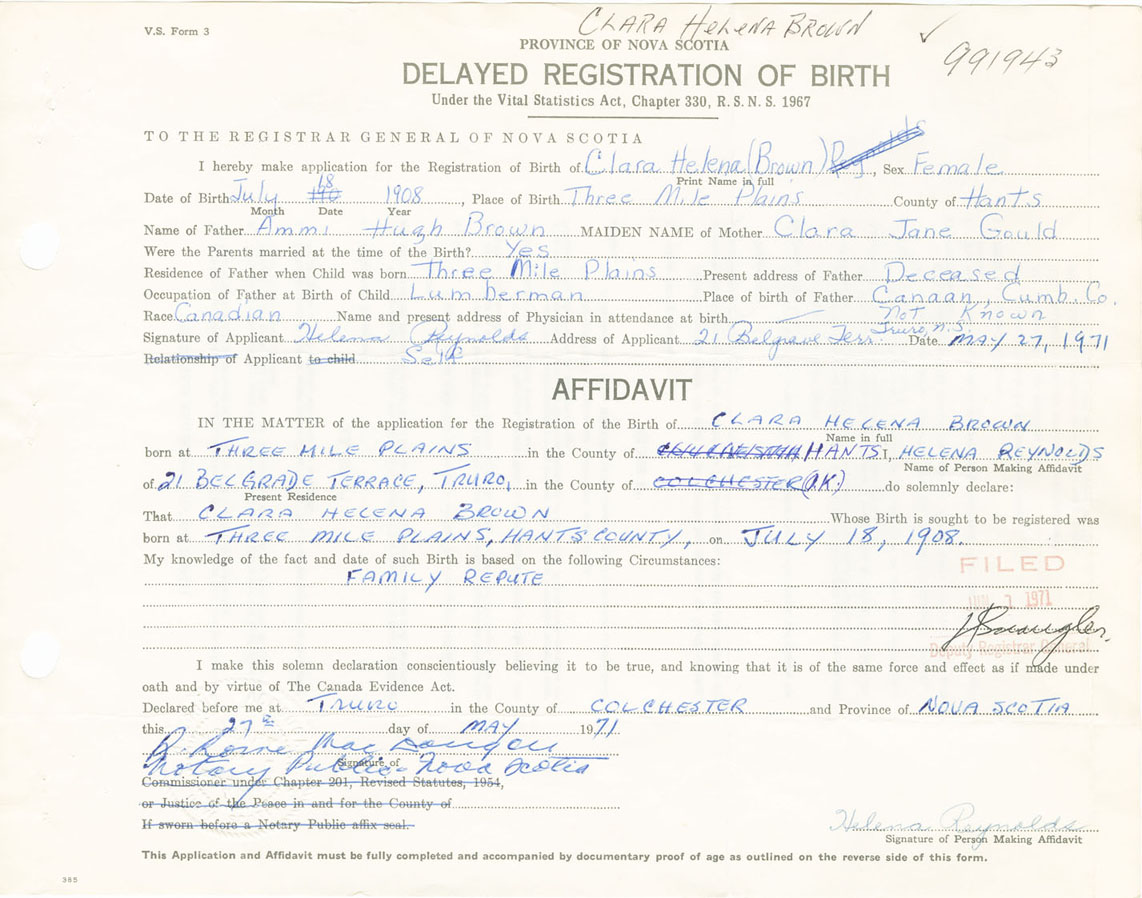 CLARA HELENA BROWN ✓
V.S. Form 3
PROVINCE OF NOVA SCOTIA
991943
DELAYED REGISTRATION OF BIRTH
Under the Vital Statistics Act, Chapter 330, R. S. N. S. 1967
TO THE REGISTRAR GENERAL OF NOVA SCOTIA
I hereby make application for the Registration of Birth of Clara Helena (Brown) Reynolds, Sex Female
Print Name in full
Date of Birth July 18 1908, Place of Birth Three Mile Plains County of Hants
Month Date Year
Name of Father Ammi Hugh Brown MAIDEN NAME of Mother Clara Jane Gould
Were the Parents married at the time of the Birth? Yes
Residence of Father when Child was born Three Mile Plains Present address of Father Deceased
Occupation of Father at Birth of Child Lumberman Place of birth of Father Canaan, Cumb. Co.
Race Canadian Name and present address of Physician in attendance at birth Not Known
Signature of Applicant Helena Reynolds Address of Applicant 21 Belgrave Terr. Truro, N.S. Date MAY 27, 1971
Relationship of Applicant to child Self
AFFIDAVIT
IN THE MATTER of the application for the Registration of the Birth of CLARA HELENA BROWN
Name in full
born at THREE MILE PLAINS in the County of HANTS I, HELENA REYNOLDS
Name of Person Making Affidavit
of 21 BELGRADE TERRACE, TRURO, in the County of COLCHESTER do solemnly declare:
Present Residence
That CLARA HELENA BROWN Whose Birth is sought to be registered was
born at THREE MILE PLAINS, HANTS COUNTY, on JULY 18, 1908.
My knowledge of the fact and date of such Birth is based on the following Circumstances:
FAMILY REPUTE
FILED
1971
Deputy Registrar General
I make this solemn declaration conscientiously believing it to be true, and knowing that it is of the same force and effect as if made under
oath and by virtue of The Canada Evidence Act.
Declared before me at TRURO in the County of COLCHESTER and Province of NOVA SCOTIA
this 27th day of MAY 1971
Notary Public - Nova Scotia
Signature of
Commissioner under Chapter 201, Revised Statutes, 1954,
or Justice of the Peace in and for the County of
If sworn before a Notary Public affix seal.
Helena Reynolds
Signature of Person Making Affidavit
This Application and Affidavit must be fully completed and accompanied by documentary proof of age as outlined on the reverse side of this form.
385